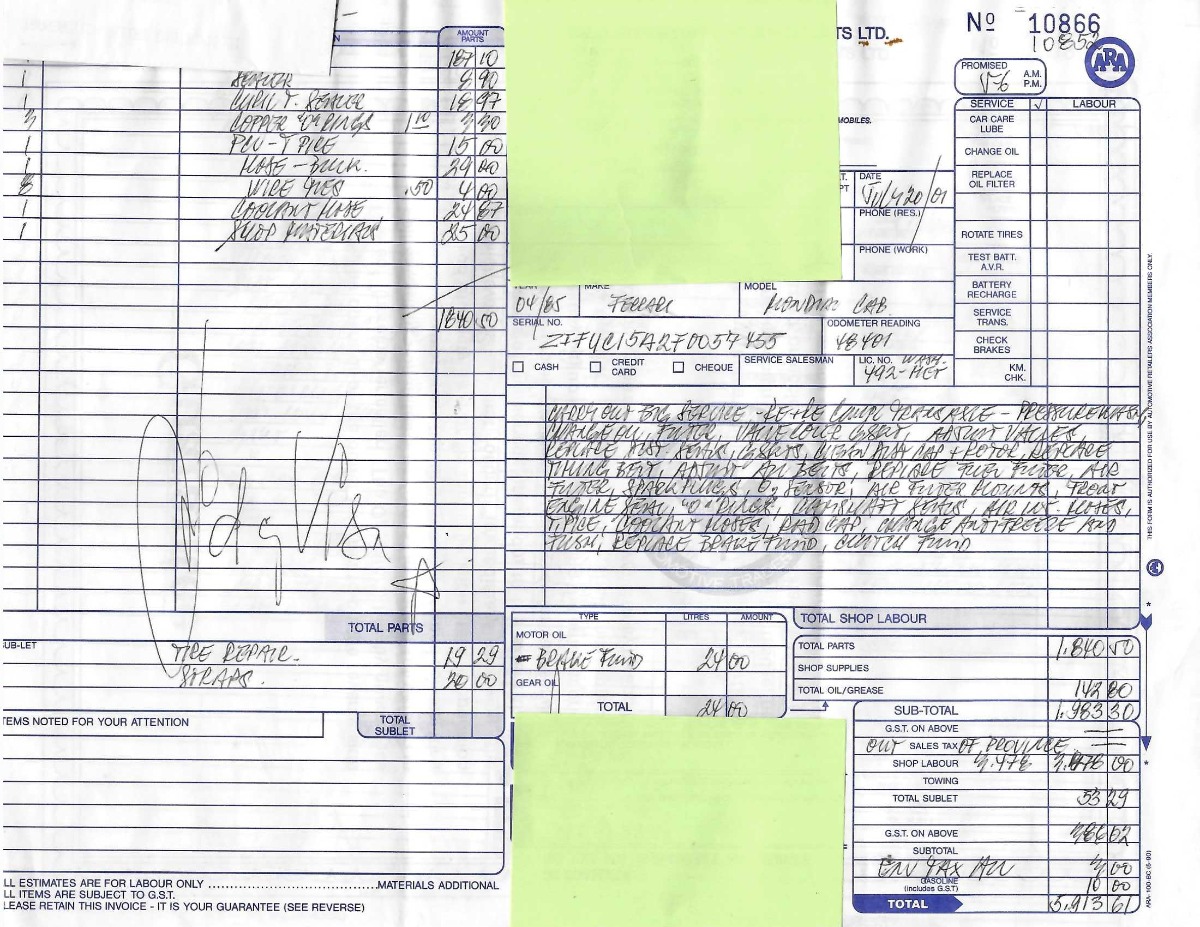 AMOUNT
PARTS
187 10
1 SENSOR 8 90
1 18 97
3 COPPER "O" RINGS 1.10 3 30
1 15 00
1 HOSE - 29 00
8 .50 4 00
1 COOLANT HOSE 24 87
1 SHOP MATERIALS 25 00
1840.50
TOTAL PARTS
SUB-LET
TIRE REPAIR. 19 29
STRAPS.
ITEMS NOTED FOR YOUR ATTENTION
TOTAL
SUBLET
ALL ESTIMATES ARE FOR LABOUR ONLY ........................MATERIALS ADDITIONAL
ALL ITEMS ARE SUBJECT TO G.S.T.
PLEASE RETAIN THIS INVOICE - IT IS YOUR GUARANTEE (SEE REVERSE)
TS LTD.
No 10866
10852
ARA
PROMISED
V76
A.M.
P.M.
MOBILES.
DATE
July 20/01
PHONE (RES.)
PHONE (WORK)
SERVICE √ LABOUR
CAR CARE
LUBE
CHANGE OIL
REPLACE
OIL FILTER
ROTATE TIRES
TEST BATT.
A.V.R.
BATTERY
RECHARGE
SERVICE
TRANS.
CHECK
BRAKES
KM.
CHK.
YEAR MAKE MODEL
04/85 FERRARI MONDIAL CAB.
SERIAL NO. ODOMETER READING
ZFFUC15A2F0057455 48401
CASH CREDIT CARD CHEQUE SERVICE SALESMAN LIC. NO. WASH.
492-HET
CARRY OUT BIG SERVICE - RE+RE TRANSAXLE - PRESSURE WASH,
CHANGE OIL, FILTER, VALVE COVER GSKT. ADJUST VALVES,
REPLACE SEALS, GSKTS, CAP + ROTOR, REPLACE
TIMING BELT, ADJUST ALL BELTS, REPLACE FUEL FILTER, AIR
FILTER, SPARK PLUGS, O2 SENSOR, AIR FILTER MOUNTS, FRONT
ENGINE SEAL, "O" RINGS, CAMSHAFT SEALS, AIR HOSES,
T PIECE, COOLANT HOSES, RAD CAP, CHANGE ANTIFREEZE AND
FLUSH, REPLACE BRAKE FLUID, CLUTCH FLUID
TYPE LITRES AMOUNT
MOTOR OIL
BRAKE FLUID 24 00
GEAR OIL
TOTAL 24 00
TOTAL SHOP LABOUR
TOTAL PARTS 1,840 50
SHOP SUPPLIES
TOTAL OIL/GREASE 142 80
SUB-TOTAL 1,983 30
G.S.T. ON ABOVE —
OUT SALES TAX OF PROVINCE —
SHOP LABOUR 3,478. 3,478 00
TOWING
TOTAL SUBLET 53 29
G.S.T. ON ABOVE 386 02
SUBTOTAL
ENV TAX 3 00
GASOLINE
(includes G.S.T.) 10 00
TOTAL 5,913 61
THIS FORM IS AUTHORIZED FOR USE BY AUTOMOTIVE RETAILERS ASSOCIATION MEMBERS ONLY.
ARA-100-BC (6-90)